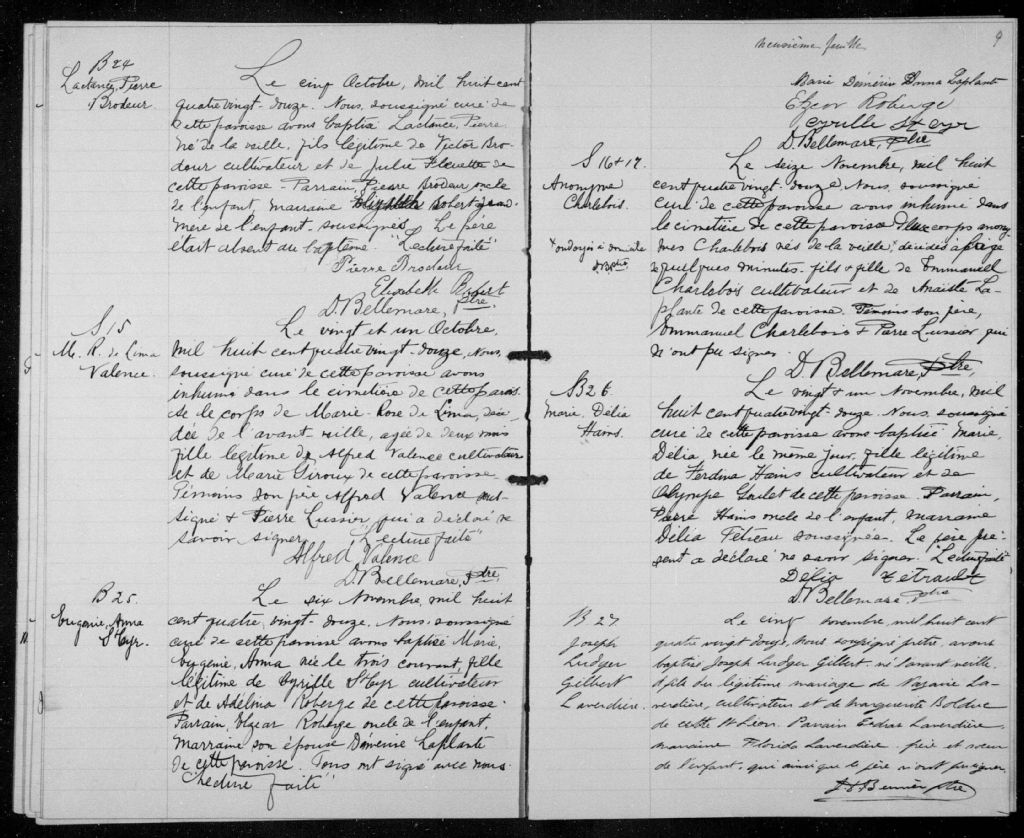 B 24
Lactance, Pierre
Brodeur.
Le cinq Octobre, mil huit cent
quatre vingt-douze. Nous, soussigné curé de
cette paroisse avons baptisé Lactance, Pierre
né de la veille, fils légitime de Victor Bro-
deur cultivateur et de Julie de
cette paroisse. Parrain, Pierre Brodeur oncle
de l'enfant, marraine Robert grand
mère de l'enfant, soussignés. Le père
était absent au baptême. "Lecture faite"
Pierre Brodeur
Elisabeth Robert
D. Bellemare, Ptre.
S 15
M. R. de Lima
Valence.
Le vingt et un Octobre,
mil huit cent quatre vingt-douze, Nous,
soussigné curé de cette paroisse avons
inhumé dans le cimetière de cette parois-
se le corps de Marie-Rose de Lima, décé-
dée de l'avant-veille, agée de deux mois
fille légitime de Alfred Valence cultivateur
et de Marie Giroux de cette paroisse.
Témoins son père Alfred Valence sous-
signé & Pierre Lussier, qui a déclaré ne
savoir signer, "Lecture faite"
Alfred Valence
D. Bellemare, Ptre,
B 25.
Eugenie, Anna
St Cyr.
Le six Novembre, mil huit
cent quatre, vingt-douze. Nous, soussigné
curé de cette paroisse avons baptisé Marie,
Eugenie, Anna née le trois courant, fille
légitime de Cyrille St Cyr cultivateur
et de Adélina Roberge de cette paroisse.
Parrain, Elzear Roberge oncle de l'enfant,
Marraine son épouse Démérise Laplante
de cette paroisse. Tous ont signé avec nous.
"Lecture faite"
neuvième feuille
9
Marie Anna Laplante
Elzear Roberge
Cyrille St Cyr
D. Bellemare, Ptre
S 16 & 17.
Anonyme
Charlebois.
ondoyés à domicile
Le seize Novembre, mil huit
cent quatre vingt-douze, Nous, soussigné
curé de cette paroisse avons inhumé dans
le cimetière de cette paroisse deux corps anony-
mes Charlebois nés de la veille, décédés à l'age
de quelques minutes, fils & fille de Emmanuel
Charlebois cultivateur et de La-
plante de cette paroisse. Témoins son père,
Emmanuel Charlebois & Pierre Lussier qui
n'ont pu signer
D. Bellemare, Ptre,
B 26.
Marie, Délia
Hains.
Le vingt & un Novembre, mil
huit cent quatre vingt-douze. Nous, soussigné
curé de cette paroisse avons baptisé Marie,
Délia née le même jour, fille légitime
de Ferdina Hains cultivateur et de
Olympe Goulet de cette paroisse. Parrain,
Pierre Hains oncle de l'enfant, marraine
Délia Tétreau soussignée. Le père pré-
sent a déclaré ne savoir signer. "Lecture faite"
Délia Tetrault
D. Bellemare, ptre
B 27
Joseph
Ludger
Gilbert
Laverdière.
Le cinq novembre, mil huit cent
quatre vingt douze, Nous soussigné prêtre, avons
baptisé Joseph Ludger Gilbert, né l'avant veille,
du légitime mariage de Nazaire La-
verdière, cultivateur et de Marguerite Bolduc
de cette St Leon. Parrain Esdras Laverdière
marraine Florida Laverdière, frère et soeur
de l'enfant, qui ainsi que le père n'ont pu signer.
ptre